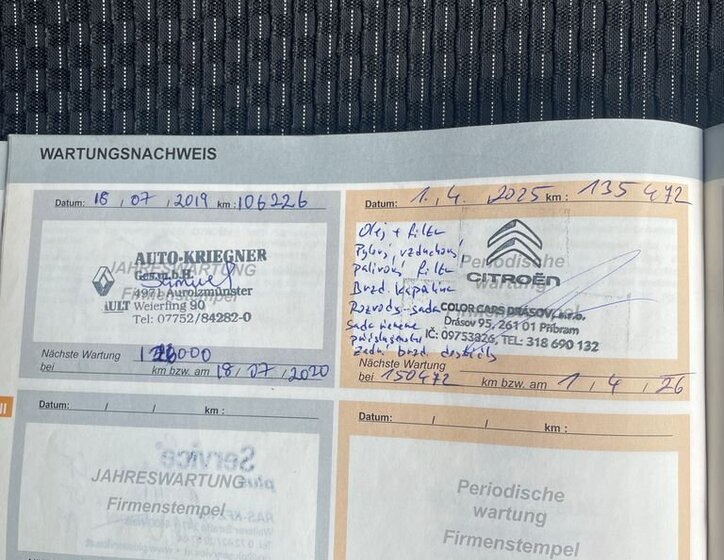 WARTUNGSNACHWEIS
Datum: 18 , 07 , 2019 km : 106226
JAHRESWARTUNG
Firmenstempel
AUTO-KRIEGNER
Ges.m.b.H.
4971 Aurolzmünster
AULT Weierfing 90
Tel: 07752/84282-0
Nächste Wartung
bei km bzw. am 18 , 07 , 2020
Datum: 1 , 4 , 2025 km : 135 472
Periodische
Olej + filtr
Pylový, vzduchový
palivový filtr
Brzd. kapalina
Rozvody - sada
příslušenství
Zadní brzd. destičky
CITROËN
COLOR CARS DRÁSOV, s.r.o.
Drásov 95, 261 01 Příbram
IČ: 09753826, TEL: 318 690 132
Nächste Wartung
bei 150472 km bzw. am 1 , 4 , 26
Datum: / / km :
JAHRESWARTUNG
Firmenstempel
Service
plus
Datum: / / km :
Periodische
wartung
Firmenstempel